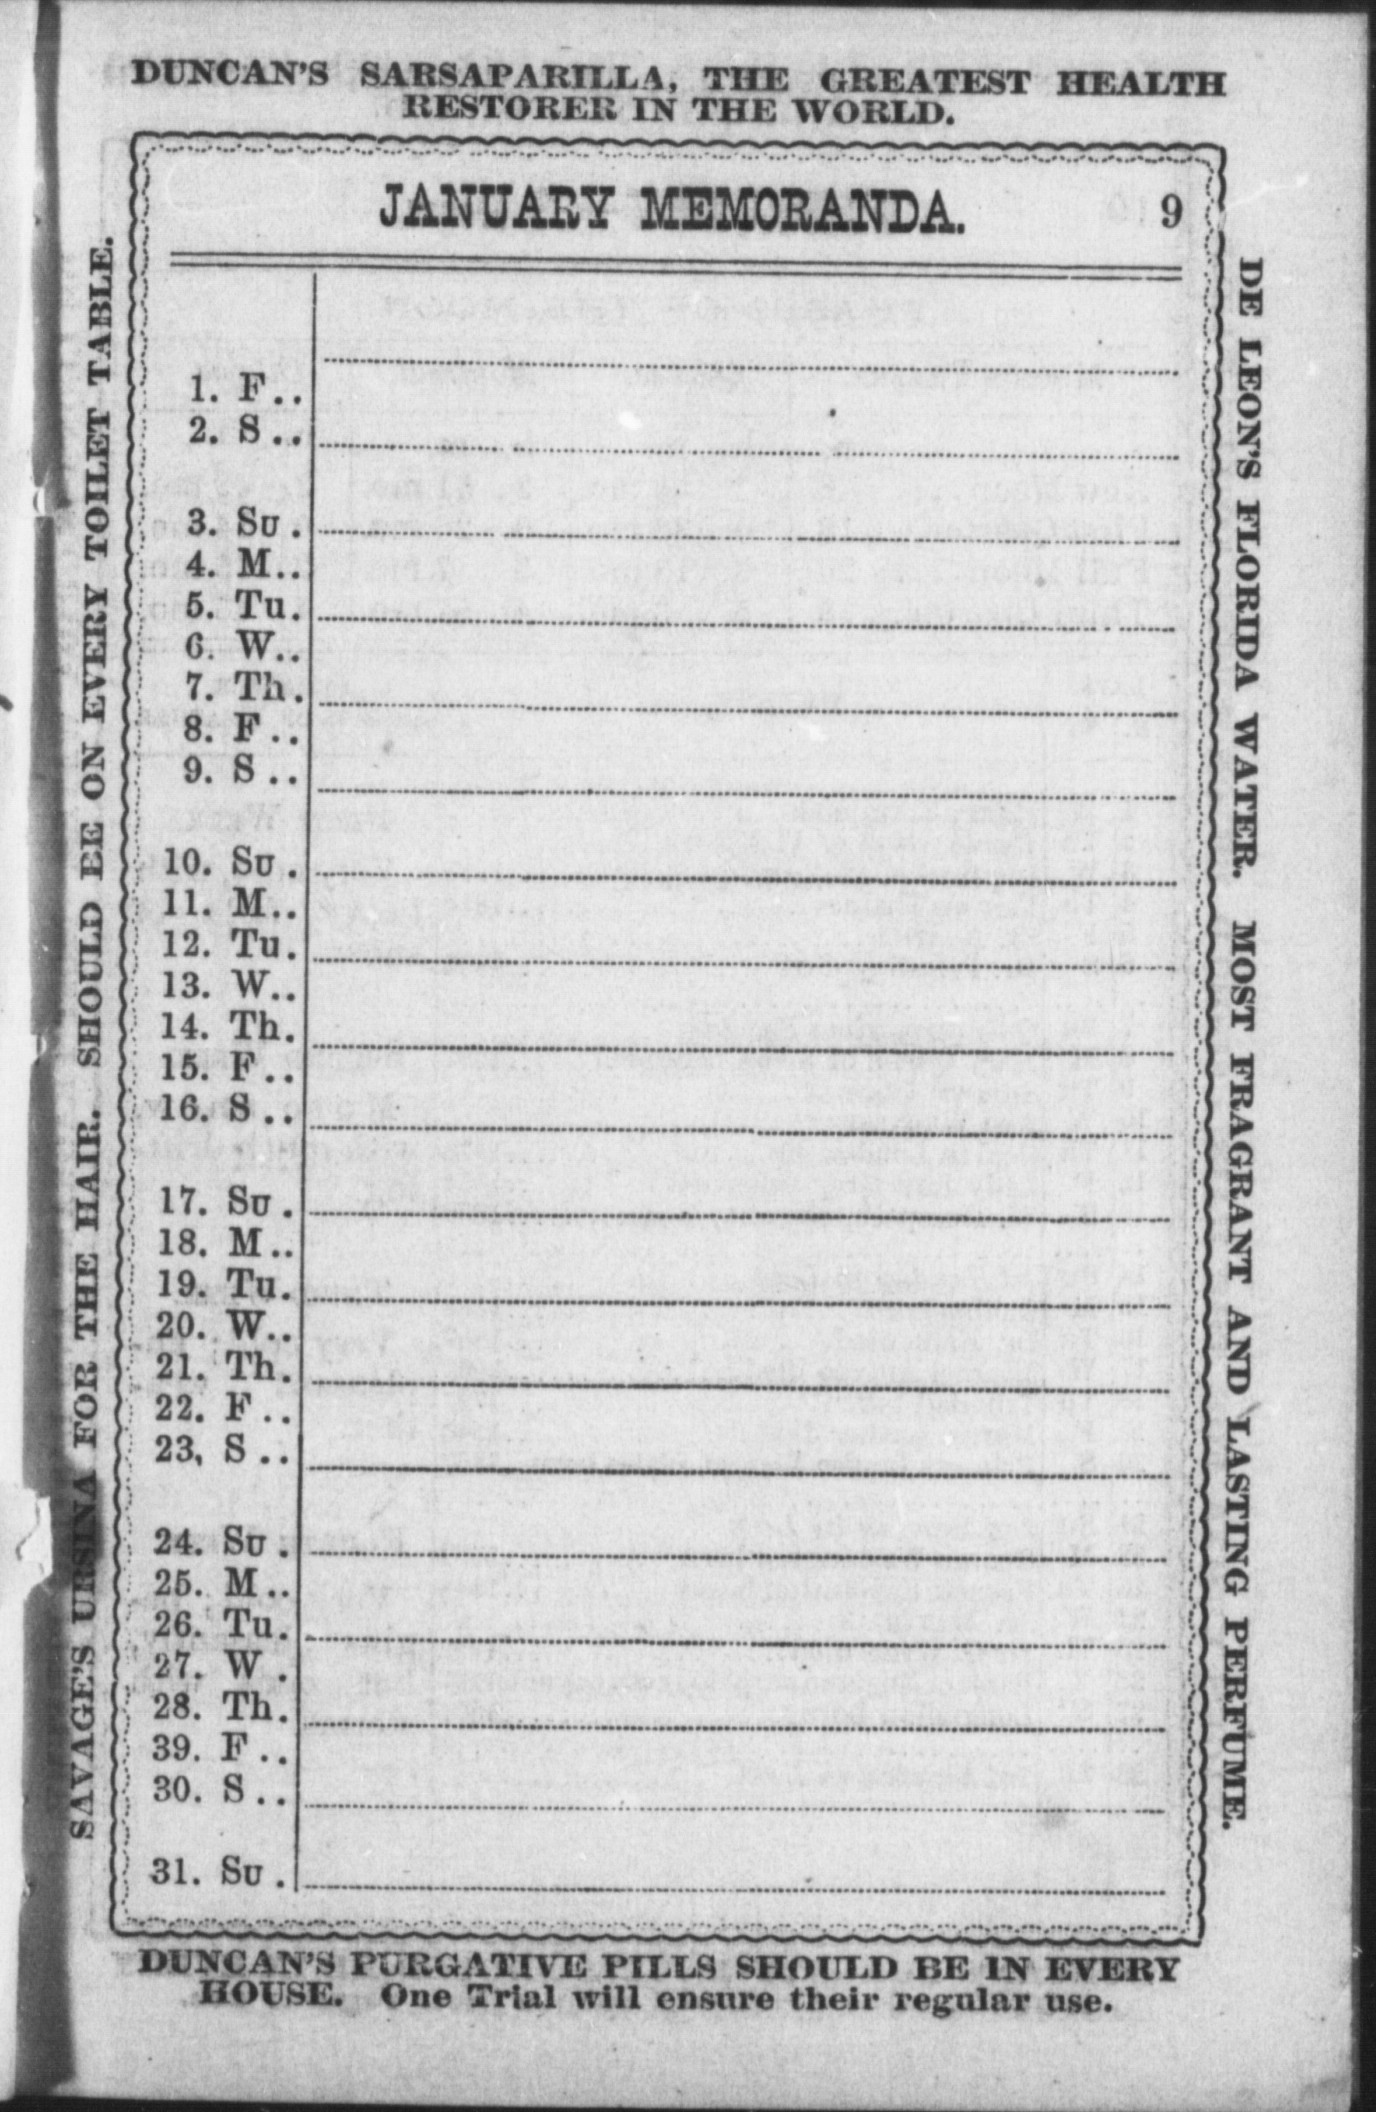 DUNCAN'S SARSAPARILLA, THE GREATEST HEALTH
RESTORER IN THE WORLD.
JANUARY MEMORANDA. 9
1. F..
2. S..
3. SU.
4. M..
5. Tu.
6. W..
7. Th.
8. F..
9. S..
10. SU.
11. M..
12. Tu.
13. W..
14. Th.
15. F..
16. S..
17. SU.
18. M..
19. Tu.
20. W..
21. Th.
22. F..
23, S..
24. SU.
25. M..
26. Tu.
27. W .
28. Th.
39. F..
30. S..
31. SU.
SAVAGE'S URSINA FOR THE HAIR. SHOULD BE ON EVERY TOILET TABLE.
DE LEON'S FLORIDA WATER. MOST FRAGRANT AND LASTING PERFUME.
DUNCAN'S PURGATIVE PILLS SHOULD BE IN EVERY
HOUSE. One Trial will ensure their regular use.